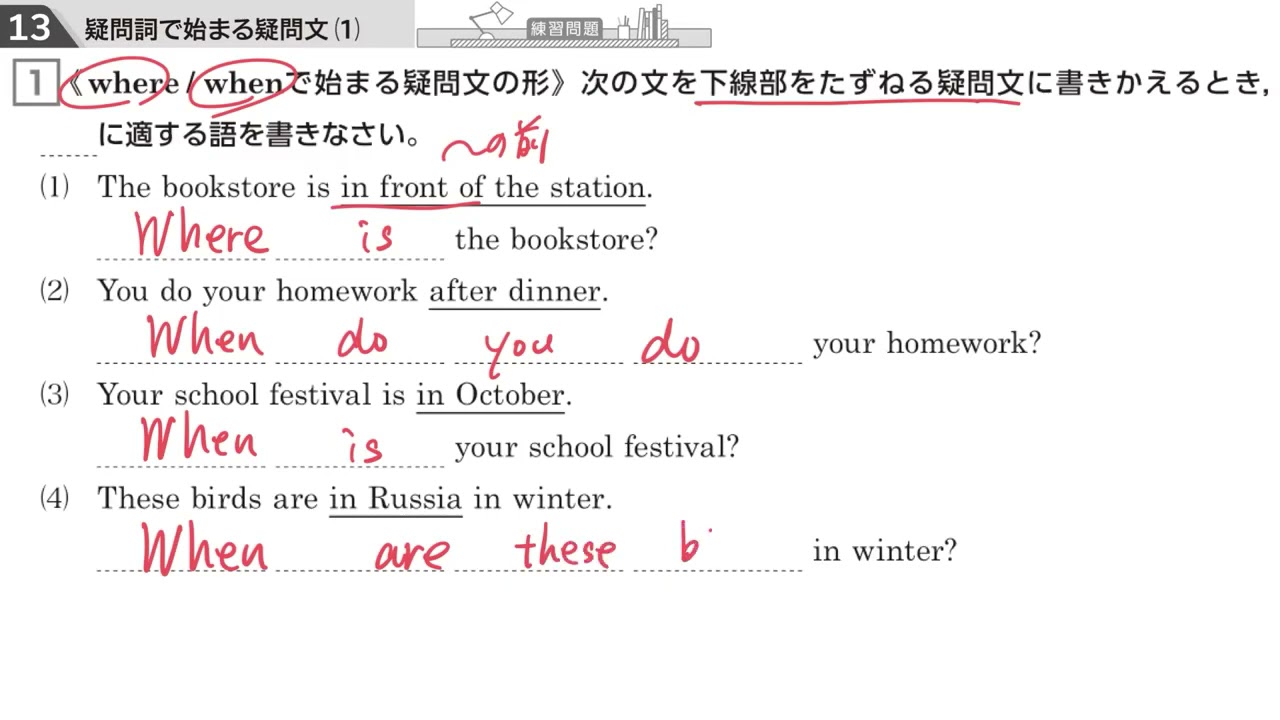 13 疑問詞で始まる疑問文(1) 練習問題
1 《where / whenで始まる疑問文の形》次の文を下線部をたずねる疑問文に書きかえるとき,
に適する語を書きなさい。 〜の前
(1) The bookstore is in front of the station.
Where is the bookstore?
(2) You do your homework after dinner.
When do you do your homework?
(3) Your school festival is in October.
When is your school festival?
(4) These birds are in Russia in winter.
When are these b in winter?